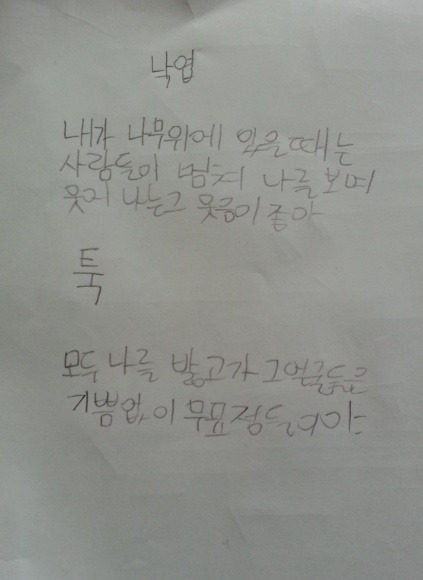 낙엽
내가 나무위에 있을때는
사람들이 멈춰 나를 보며
웃어 나는 그 웃음이 좋아
툭
모두 나를 밟고가 그 얼굴들은
기쁨없이 무표정들이야